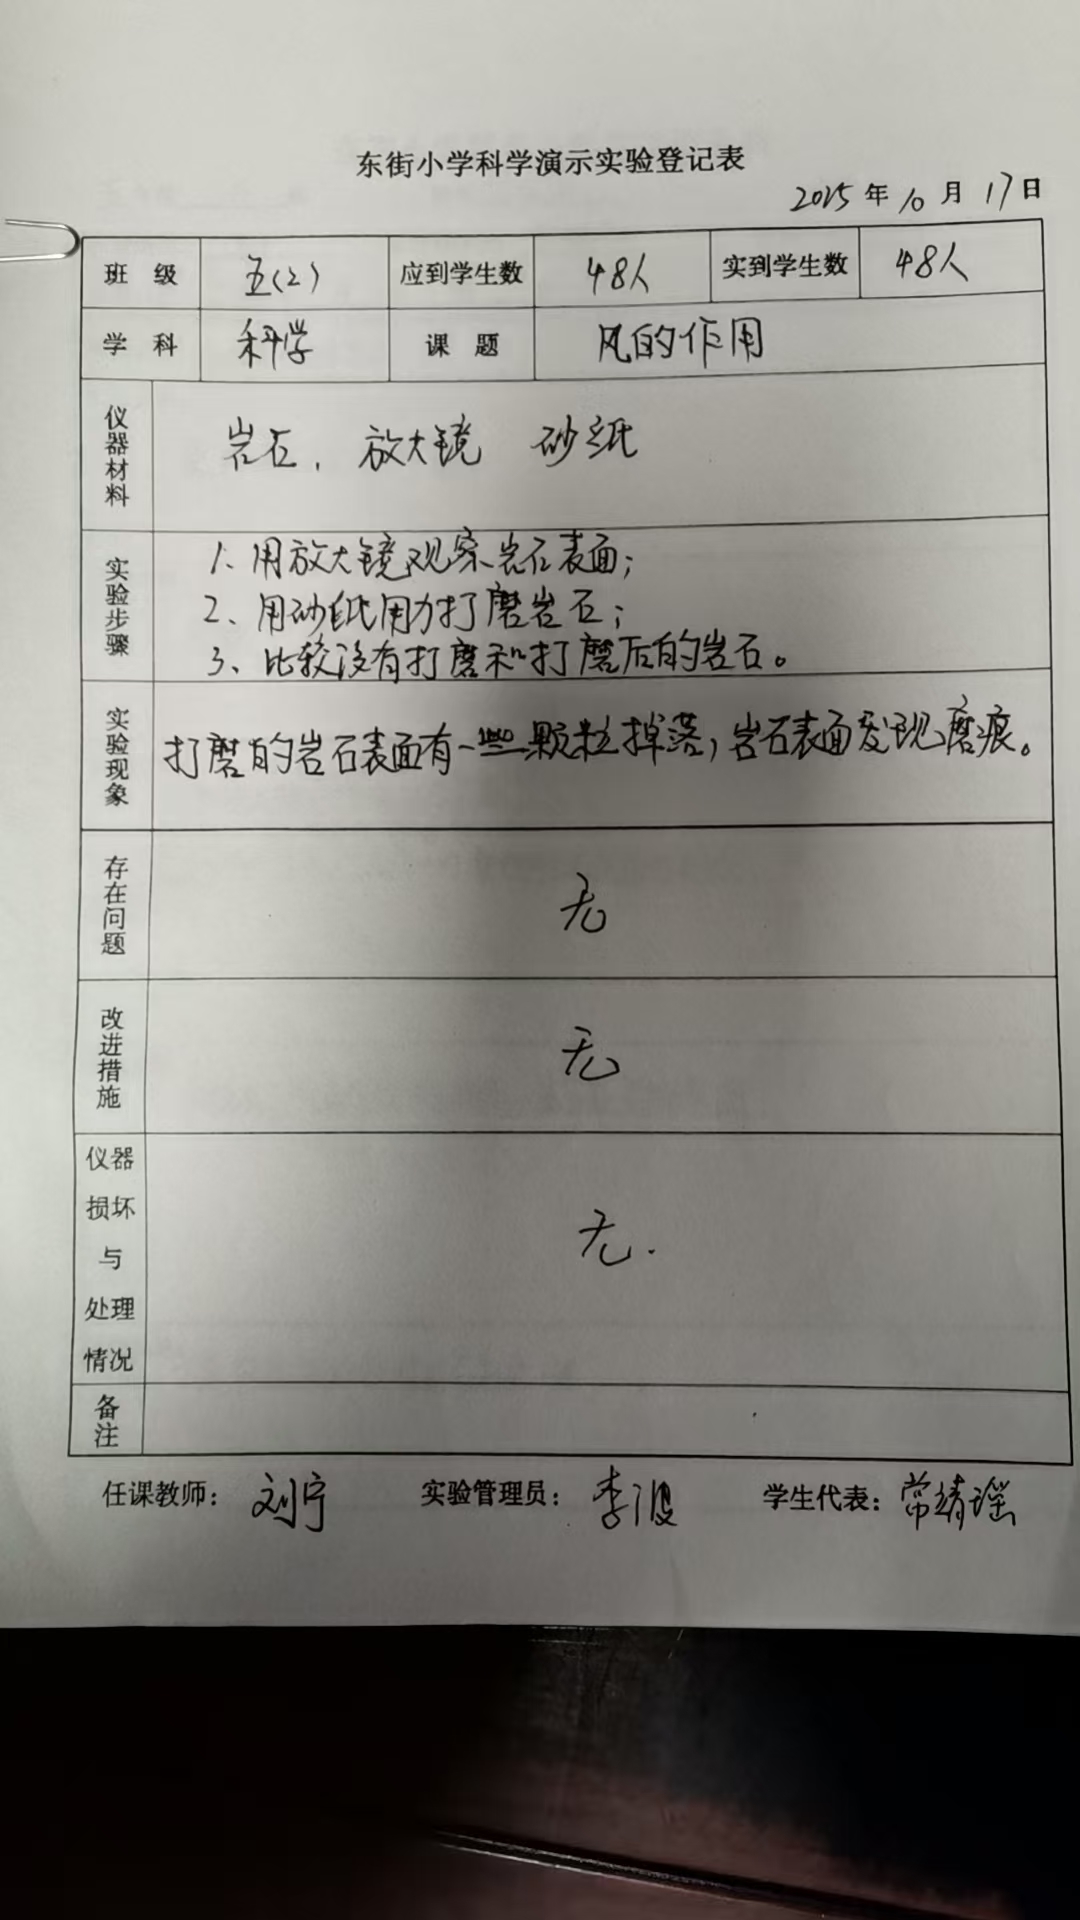 东街小学科学演示实验登记表
2025 年 10 月 17 日
班 级 五(2) 应到学生数 48人 实到学生数 48人
学 科 科学 课 题 风的作用
仪器材料 岩石, 放大镜 砂纸
实验步骤
1、用放大镜观察岩石表面;
2、用砂纸用力打磨岩石;
3、比较没有打磨和打磨后的岩石。
实验现象 打磨的岩石表面有一些颗粒掉落,岩石表面发现磨痕。
存在问题 无
改进措施 无
仪器损坏与处理情况 无.
备注
任课教师: 刘宁 实验管理员: 李波 学生代表: 常靖瑶